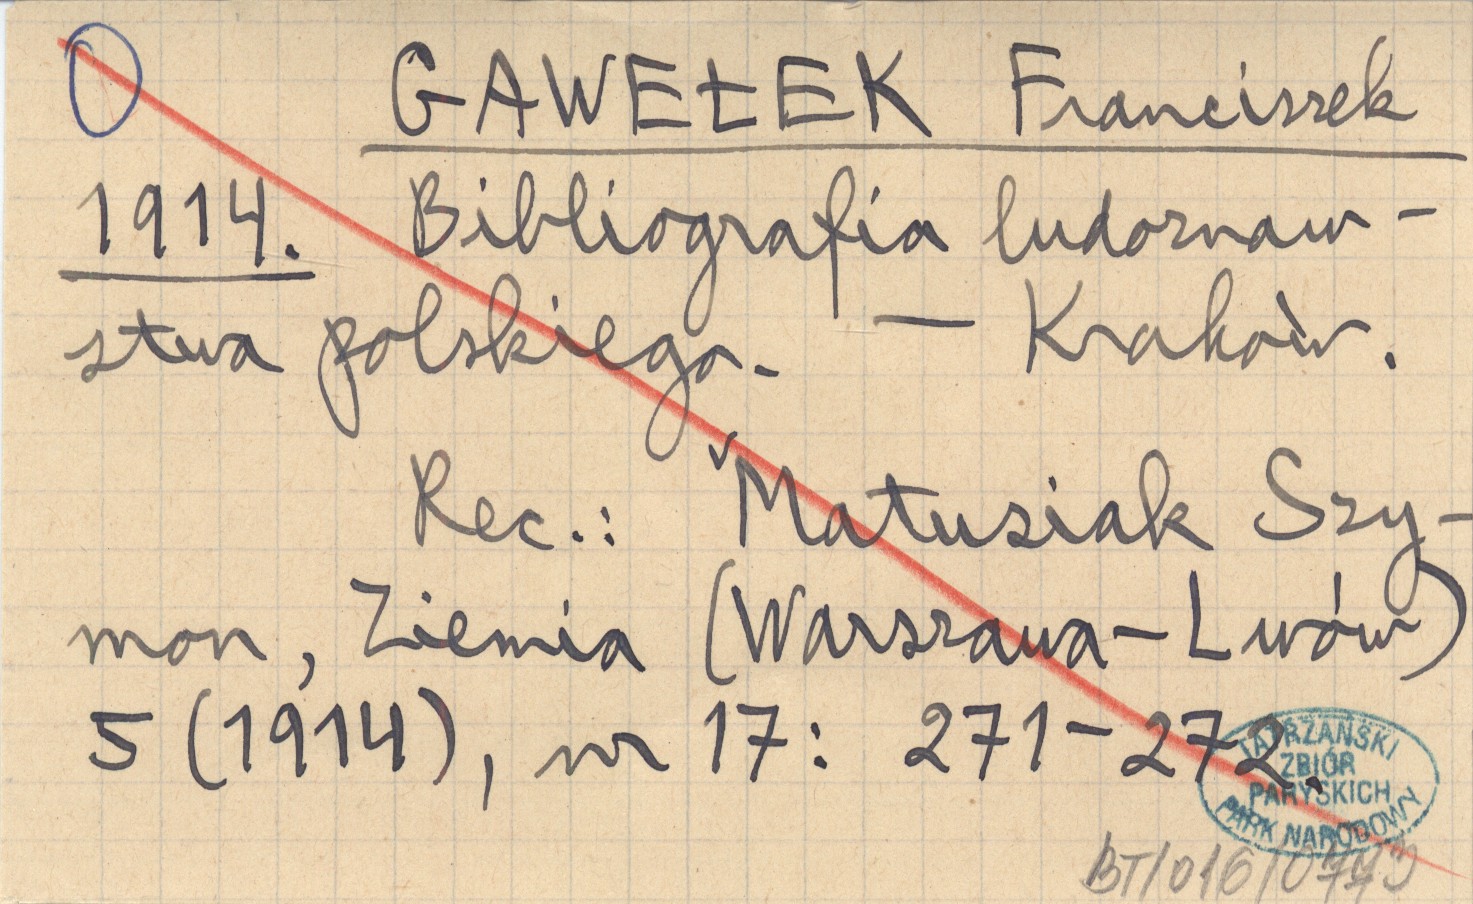 GAWEŁEK Franciszek
1914. Bibliografia ludoznaw-
stwa polskiego. — Kraków.
Rec.: Matusiak Szy-
mon, Ziemia (Warszawa-Lwów)
5 (1914), nr 17: 271-272.
TATRZAŃSKI
ZBIÓR
PARYSKICH
PARK NARODOWY
BT/016/0773